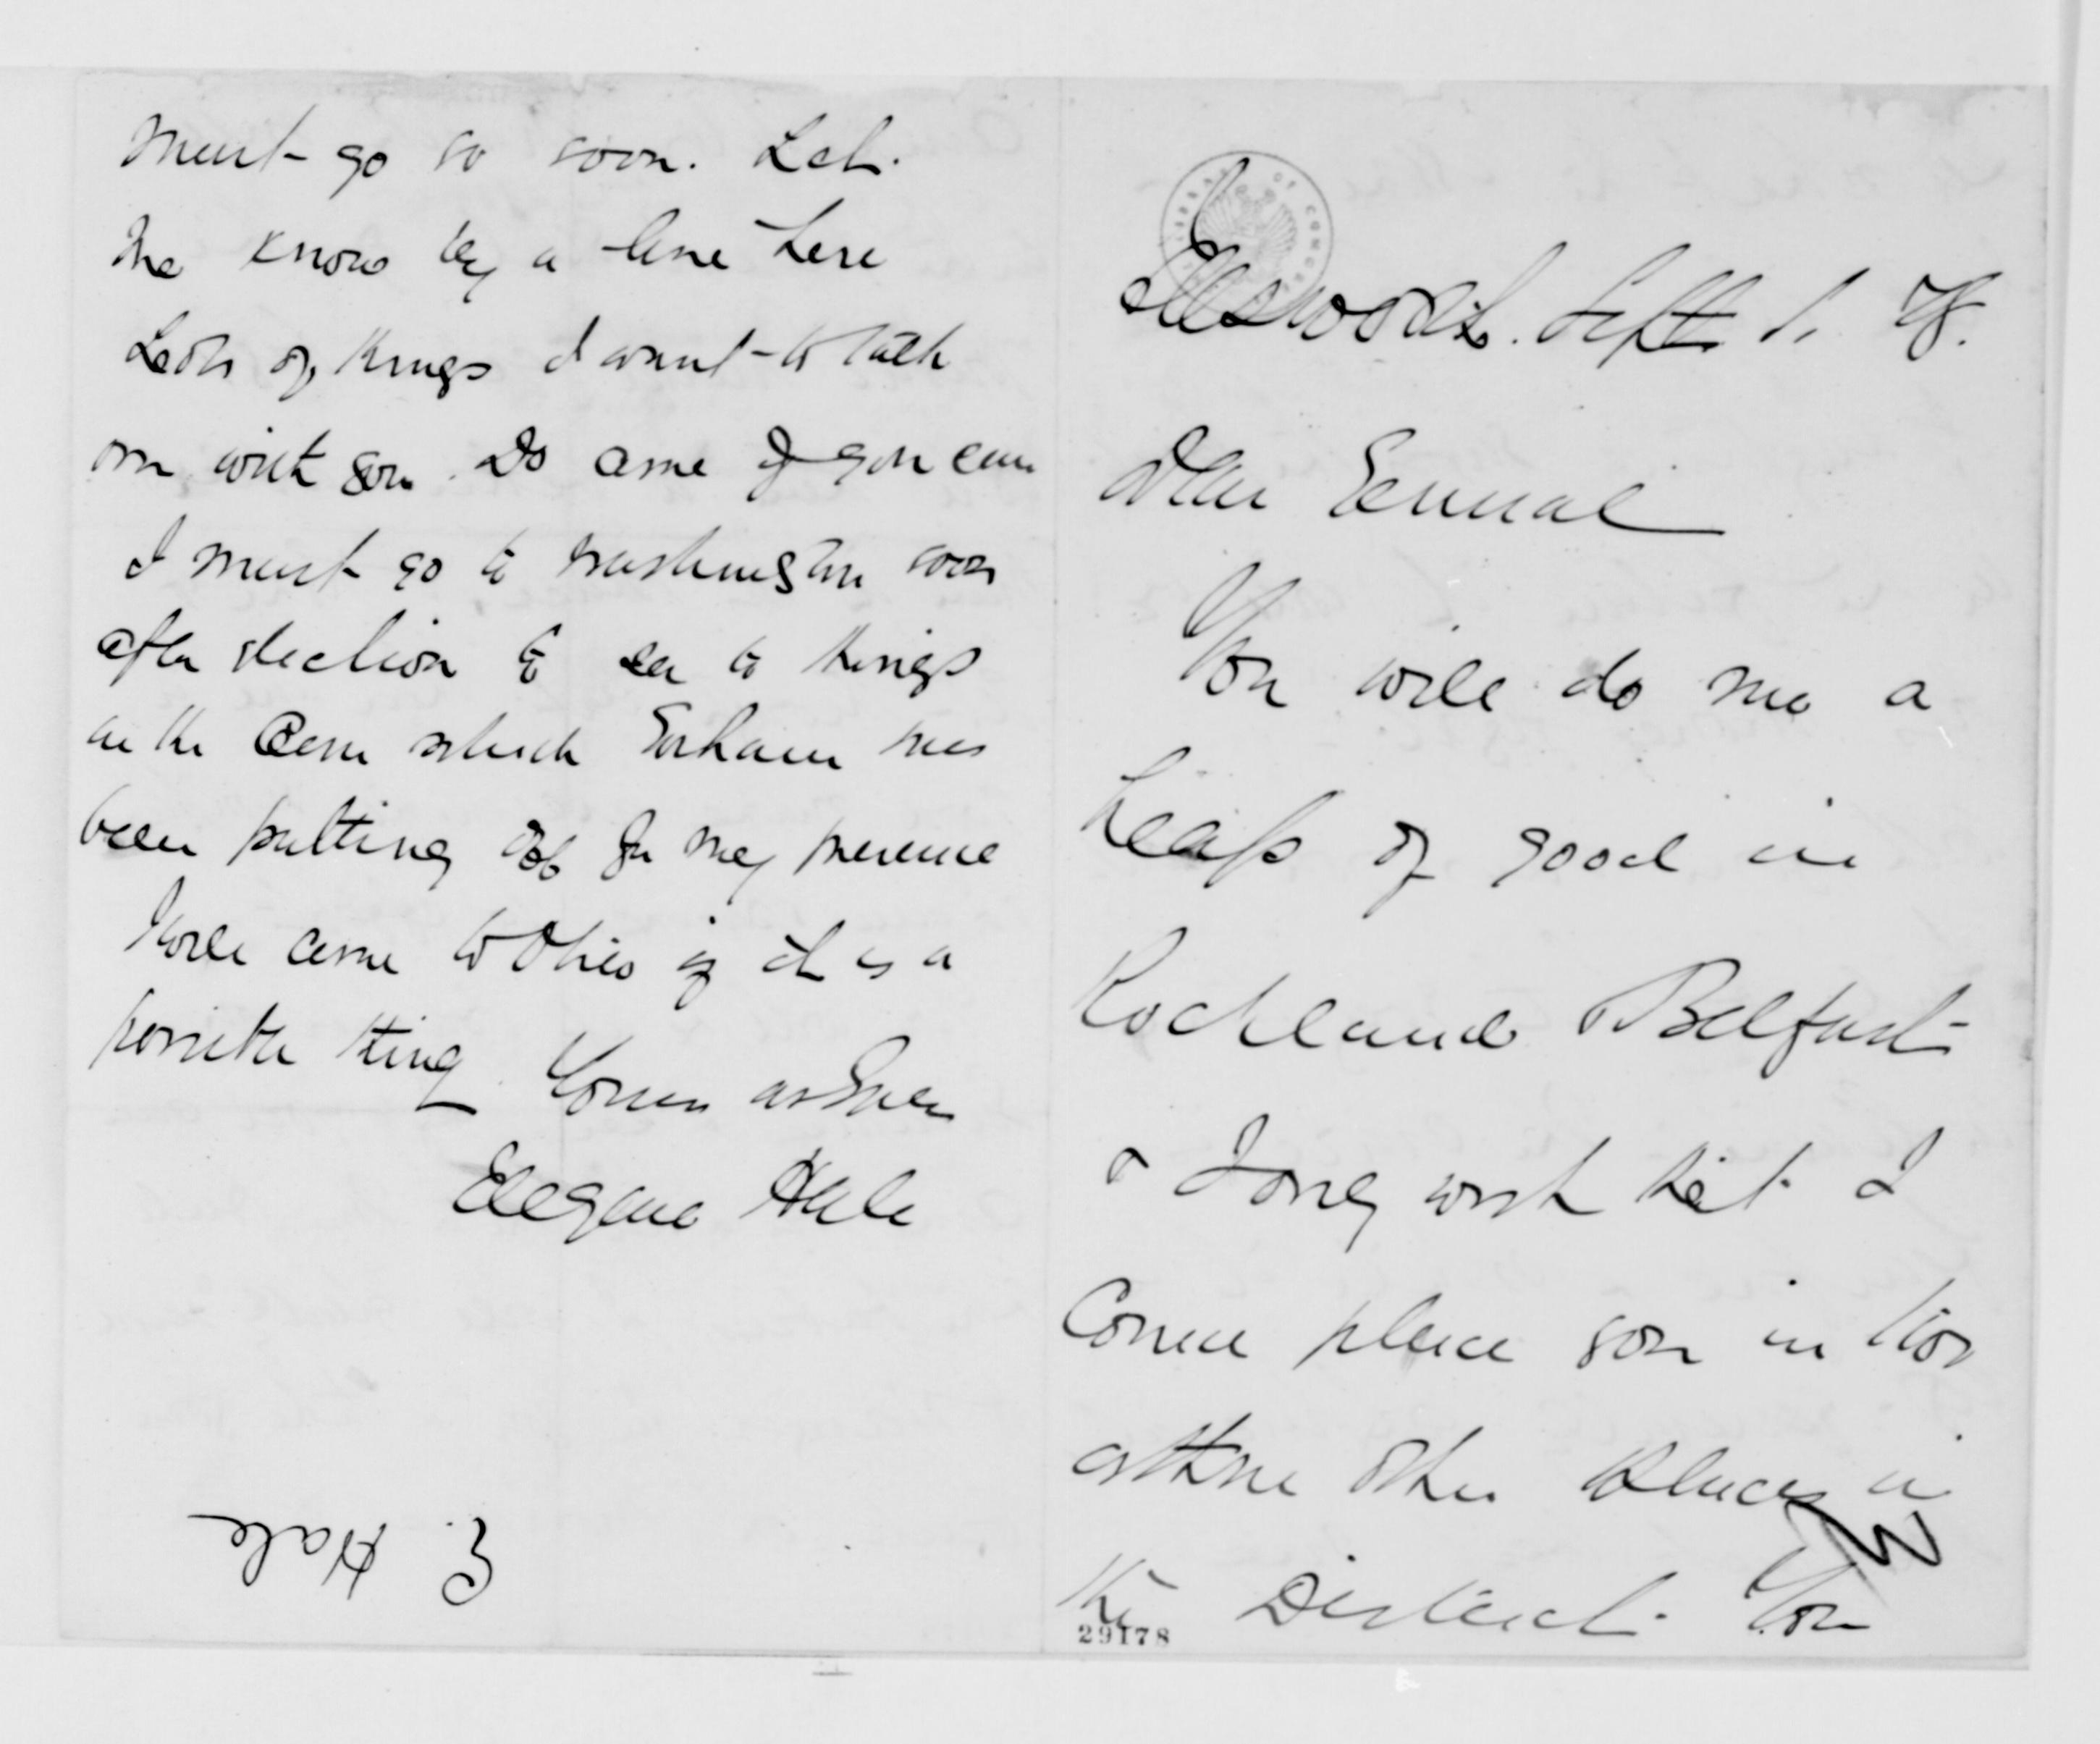 Ellsworth. Sept 1. 78.
Dear General
You will do me a
heap of good in
Rockland & Belfast
& I only wish that I
Could place you in two
or three other places in
the District. You
29178
must go so soon. Let.
me know by a line here
Lots of things I want to talk
over with you. Do come if you can
I must go to Washington soon
after election to see to things
in the Com which Gorham has
been putting off for my presence
I will come to Ohio if it is a
possible thing Yours as Ever
Eugene Hale
E. Hale
LIBRARY OF CONGRESS